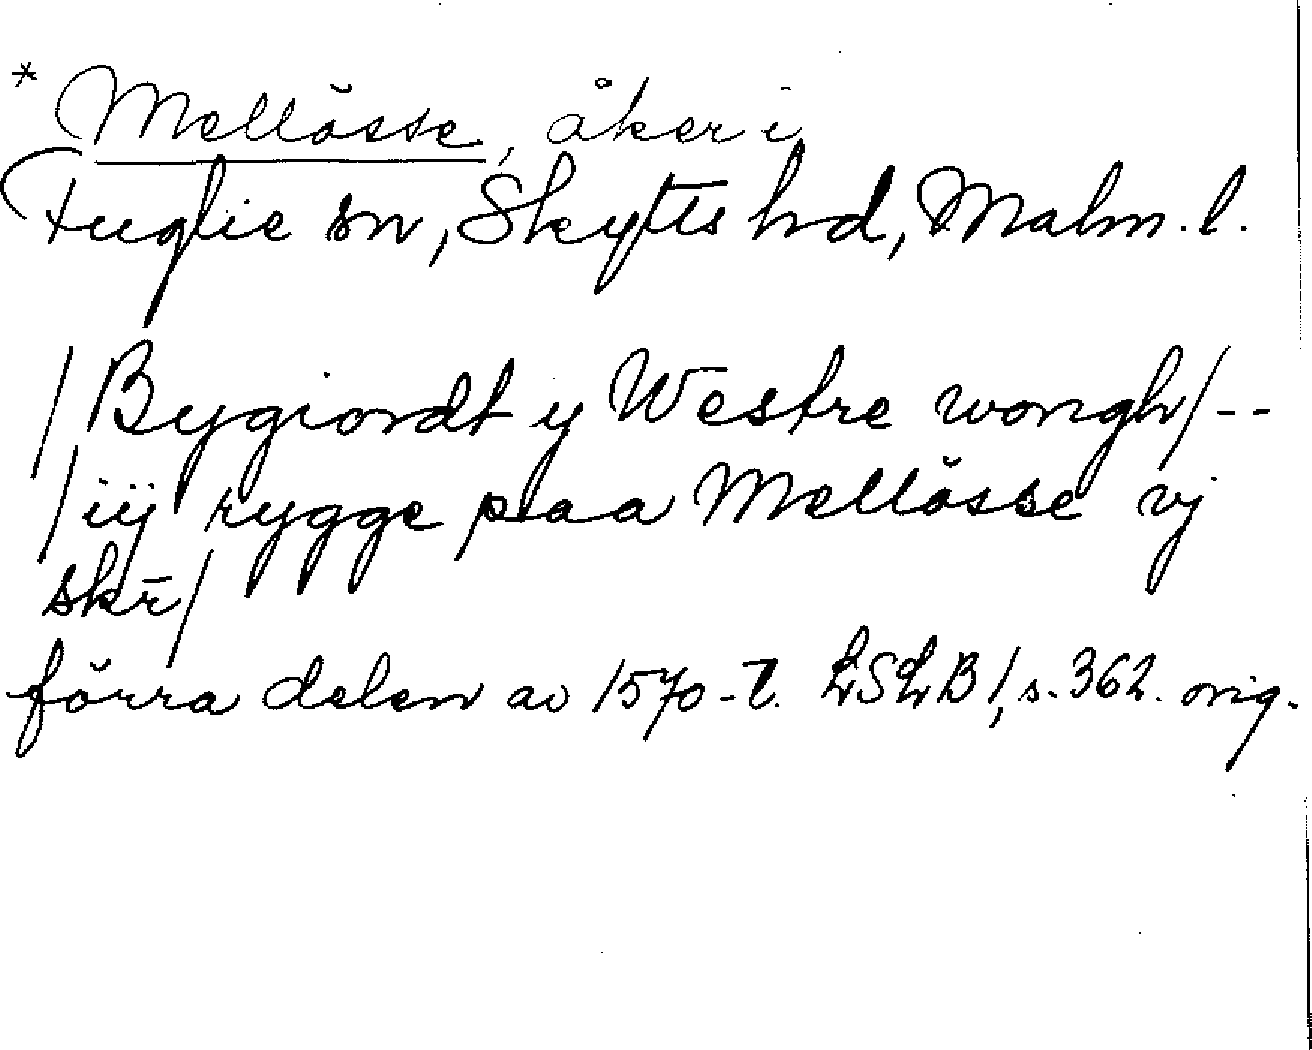 * Mellösse, åker i
Fuglie sn, Skytts hd, Malm. l.
/Bygiordt y Westre wongh/--
/iij rygge paa Mellösse vj
skr̄/
förra delen av 1570-t. LSLB 1, s. 362. orig.